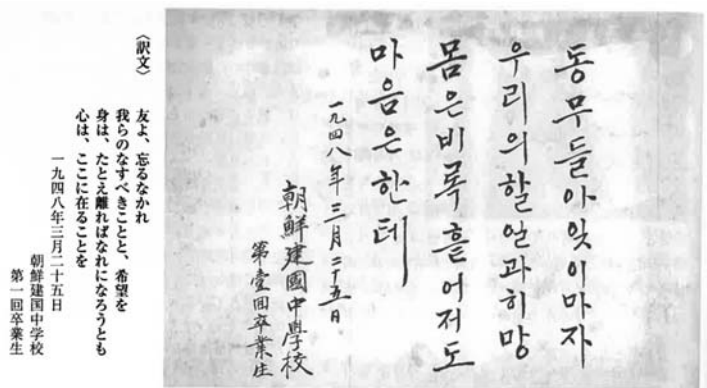 동무들아잊이마자
우리의할일과히망
몸은비록흩어저도
마음은한데
一九四八年三月二十五日
朝鮮建國中學校
第壹回卒業生
〈訳文〉
友よ、忘るなかれ
我らのなすべきことと、希望を
身は、たとえ離ればなれになろうとも
心は、ここに在ることを
一九四八年三月二十五日
朝鮮建国中学校
第一回卒業生